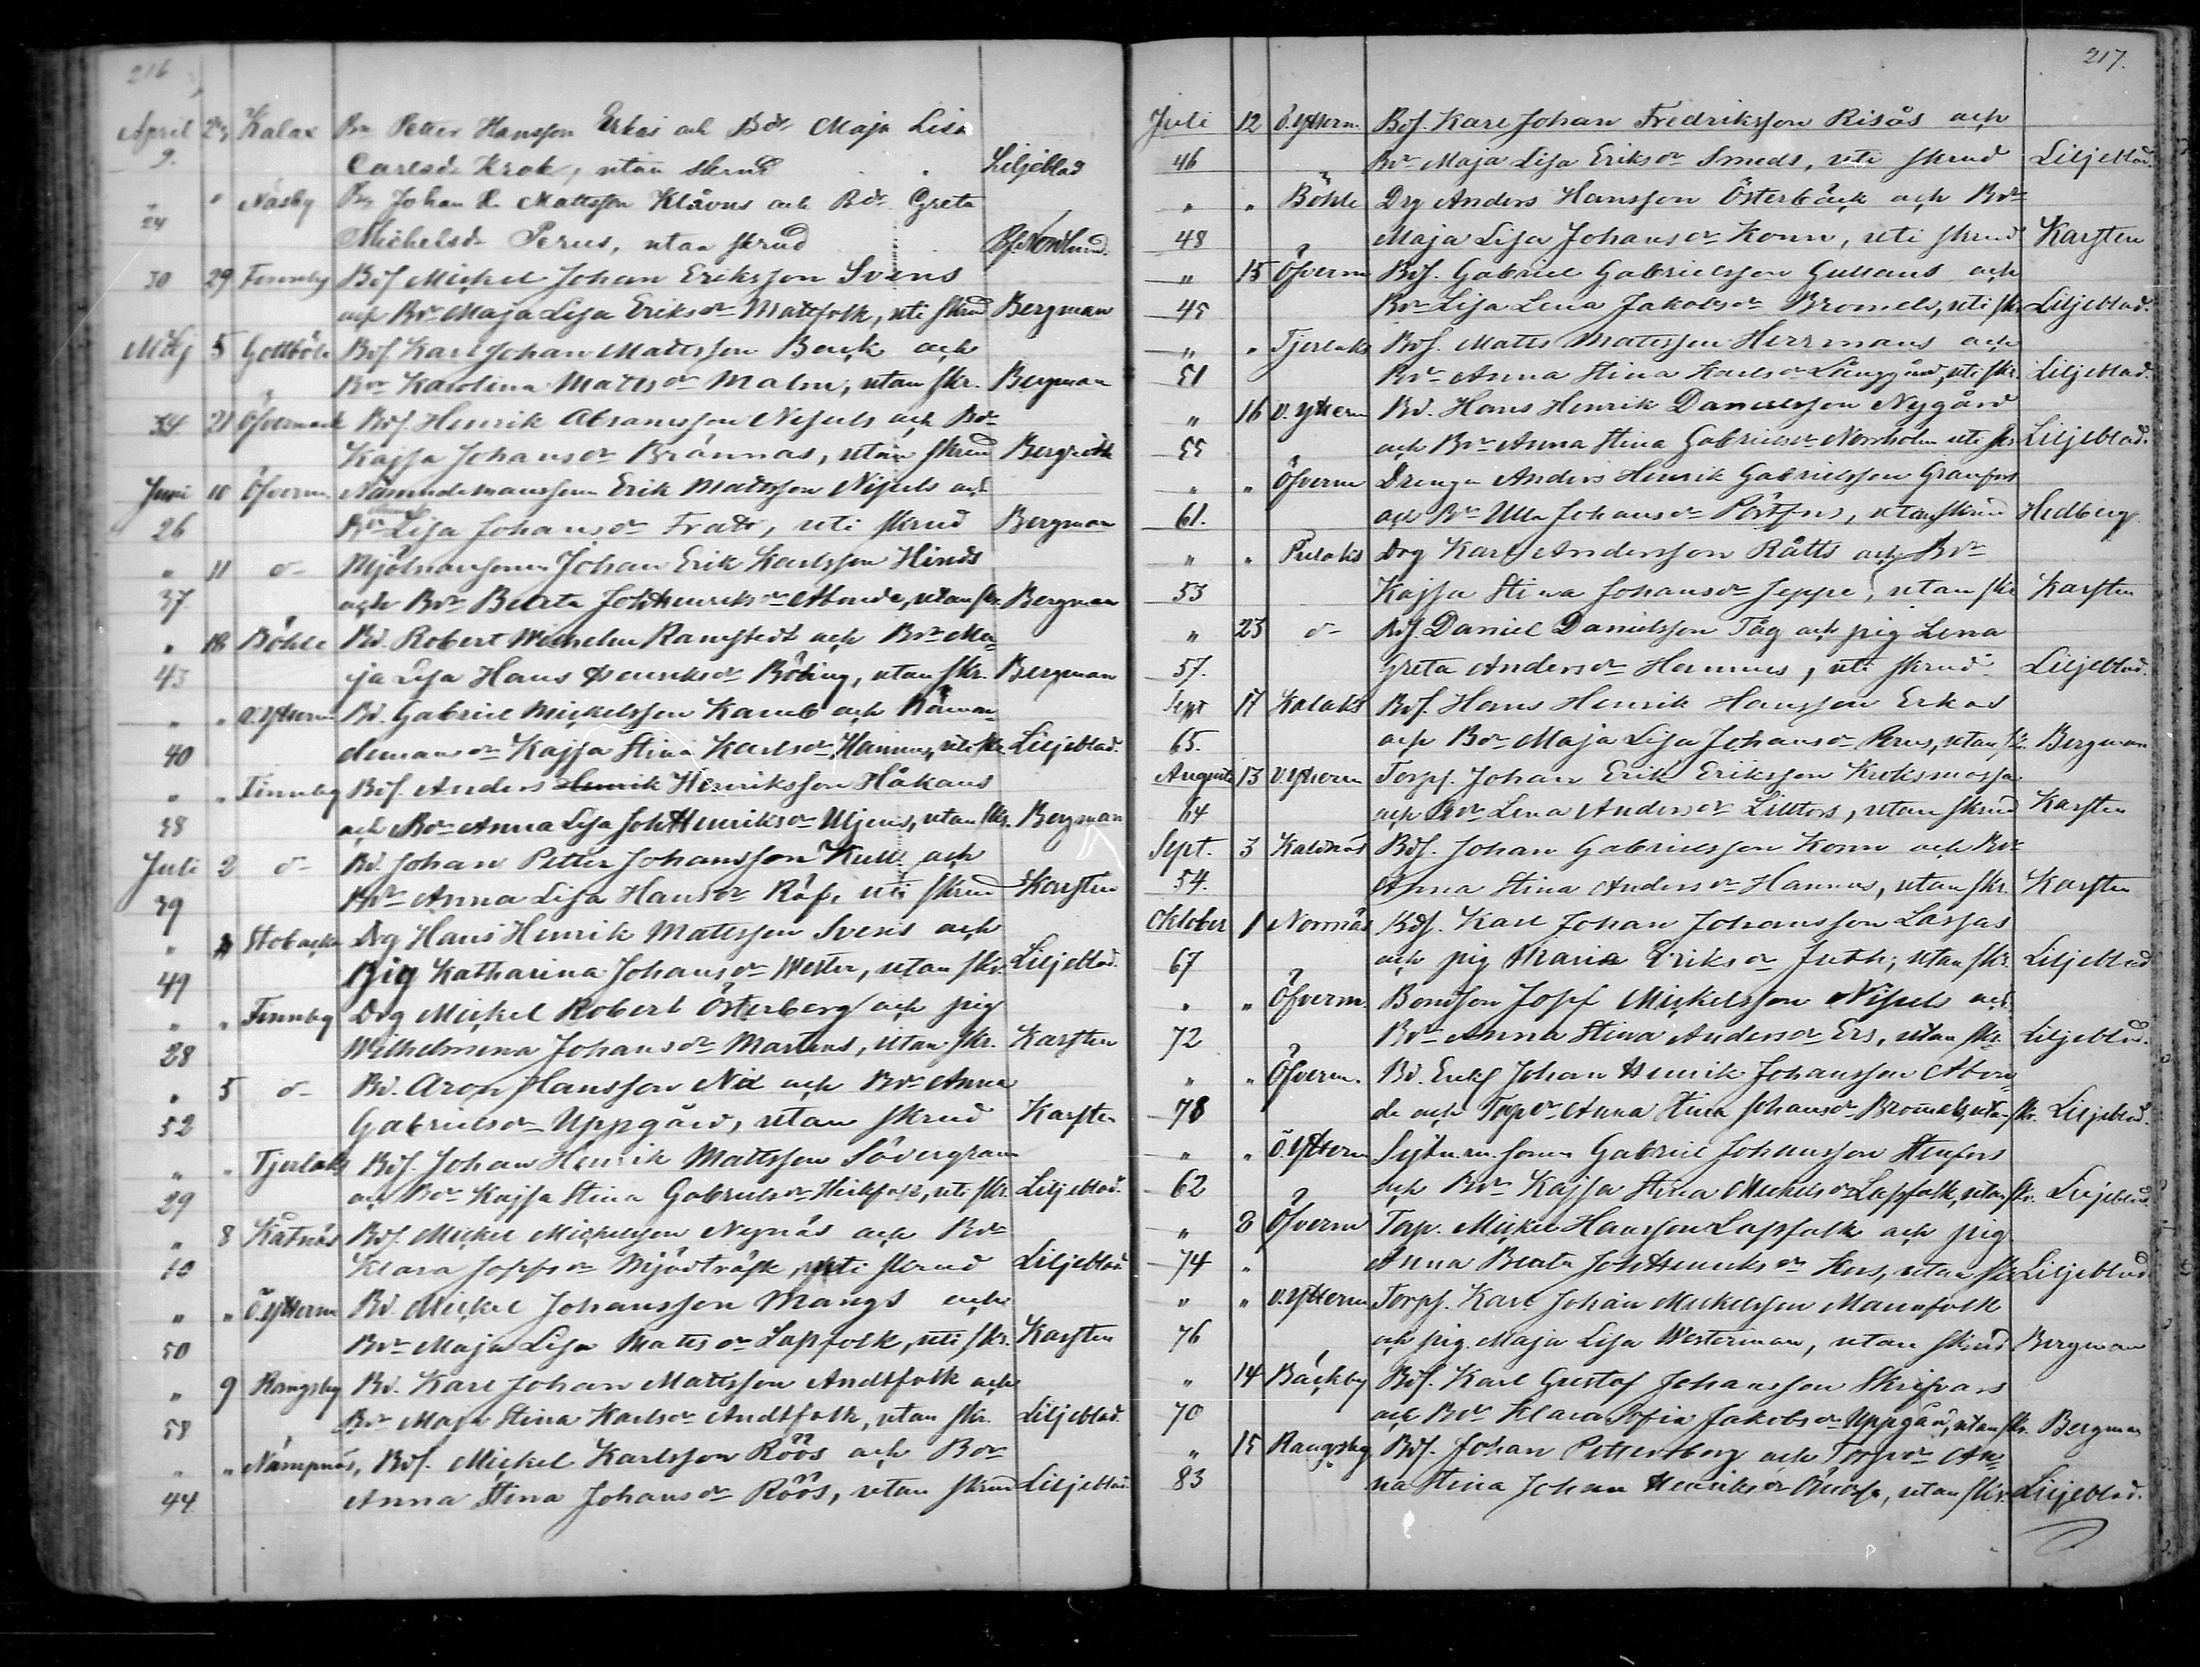 216
April 23 Kalax Bd Petter Hansson Erkas och Bdr Maja Lisa
9. Carlsdr Krok, utan skrud Liljeblad
" " Näsby Bd Johan H. Mattsson Klåvus och Bdr Greta
24 Michelsdr Perus, utan skrud Nordlund.
30 29 Finnby Bdf Mickel Johan Eriksson Svens
och Bdr Maja Lisa Eriksdr Mattfolk, uti skrud Bergman
Maj 5 Gottböle Bdf Karl Johan Mattsson Back och
Bdr Karolina Mattsdr Malm, utan skr. Bergman
34 21 Öfvermark Bdf. Henrik Abramsson Nissels och Bdr
Kajsa Johansdr Brännas, utan skrud Bergroth
Juni 10 Öfverm. Nämndemanssonen Erik Mattsson Nissels och
26 Bdr Lisa Johansdr Frads, uti skrud Bergman
" 11 d- Mjölnaresonen Johan Erik Karlsson Hinds
37 och Bdr Beata Joh Henriksdr Abonde, utan skr. Bergman
" 18 Böhle Bd. Robert Wilhelm Ramstedt och Bdr Ma
43 ja Lisa Hans Henriksdr Böling, utan skr. Bergman
" " V. Ytterm Bd. Gabriel Mickelsson Kamb och Nämn
40 demansdr Kajsa Stina Karlsdr Hannus, uti skr. Liljeblad.
" " Finnby Bdf. Anders Henrik Henriksson Håkans
38 och Bdr Anna Lisa Joh Henriksdr Uljens, utan skr. Bergman
Juli 2 d- Bd. Johan Petter Johansson Kull och
39 Bdr Anna Lisa Hansdr Räf, uti skrud Karsten
" 4 Stobacka Drg Hans Henrik Mattsson Svens och
49 Pig Katharina Johansdr Wester, utan skr. Liljeblad.
" " Finnby Drg Mickel Robert Österberg och pig
28 Wilhelmina Johansdr Martens, utan skr. Karsten
" 5 d- Bd. Aron Hansson Nix och Bdr Anna
52 Gabrielsdr Uppgård, utan skrud Karsten
" " Tjerlaks Bdf. Johan Henrik Mattsson Södergran
29 och Bdr Kajsa Stina Gabrielsdr, uti skr. Liljeblad.
" 8 Kåtnäs Bdf. Mickel Mickelsson Nynäs och Bdr
10 Klara Josefsdr Mjödträsk, uti skrud Liljeblad.
" " Ö. Ytterm Bd. Mickel Johansson Mangs och
50 Bdr Maja Lisa Mattsdr Lapfolk, uti skr. Karsten
" 9 Rangsby Bd. Karl Johan Mattsson Andtfolk och
58 Bdr Maja Stina Karlsdr Andtfolk, utan skr. Liljeblad.
" " Nämpnäs, Bdf. Mickel Karlsson Röös och Bdr
44 Anna Stina Johansdr Röös, utan skrud Liljeblad.
217.
Juli 12 Ö. Ytterm. Bdf. Karl Johan Fredriksson Risås och
46 Bdr Maja Lisa Eriksdr Smeds, uti skrud Liljeblad.
" " Böhle Drg Anders Hansson Österback och Bdr
48 Maja Lisa Johansdr Konn, uti skrud Karsten
" 15 Öfverm Bdf. Gabriel Gabrielsson Gullans och
45 Bdr Lisa Lena Jakobsdr Bromels, uti skr Liljeblad.
" " Tjerlaks Bdf. Matts Mattsson Herrmans och
51 Bdr Anna Stina Karlsdr Långgård, uti skr. Liljeblad.
" 16 V. Ytterm Bd. Hans Henrik Danielsson Nygård
55 och Bdr Anna Stina Gabrielsdr Norrholm uti skr Liljeblad.
" " Öfverm Drengen Anders Henrik Gabrielsson Granfors
61. och Bdr Ulla Johansdr Pörtfors, utan skrud Hedberg.
" " Pielaks Drg Karl Andersson Rätts och Bdr
53 Kajsa Stina Johansdr Jeppe, utan skr Karsten
" 23 d- Bdf. Daniel Danielsson Tåg och pig Lena
57. Greta Andersdr Hannus, uti skrud Liljeblad.
Sept 17 Kalaks Bdf. Hans Henrik Hansson Erkas
65. och Bdr Maja Lisa Johansdr Perus, utan sk. Bergman
Augusti 13 V. Ytterm Torpf. Johan Erik Eriksson Kroksmossa
64 och Bdr Lena Andersdr Lilltors, utan skrud Karsten
Sept. 3 Kaldnäs Bdf. Johan Gabrielsson Konn och Bdr
54. Anna Stina Andersdr Hannus, utan skr. Karsten
Oktober 1 Norrnäs Bdf. Karl Johan Johansson Lassas
67 och pig Maria Eriksdr Juth, utan skr. Liljeblad
" " Öfverm. Bondson Josef Mickelsson Nissels och
72 Bdr Anna Stina Andersdr Ers, utan skr. Liljeblad.
" " Öfverm. Bd. Enkl Johan Henrik Johansson Abon
78 de och Torpdr Anna Stina Johansdr Bromels, utan skr. Liljeblad.
" " Ö. Ytterm Sexm. m. sonen Gabriel Johansson Stenfors
62 och Bdr Kajsa Stina Mickelsdr Lapfolk, utan skr. Liljeblad.
" 8 Öfverm Torp. Mickel Hansson Lapfolk och pig
74 " Anna Beata Joh Henriksdr Hers, utan skr Liljeblad
" " V. Ytterm Torpf. Karl Johan Mickelsson Mannfolk
76 och pig. Maja Lisa Westerman, utan skrud Bergman
" 14 Bäckby Bdf. Karl Gustaf Johansson Skrifvars
70 och Bdr Klara Sofia Jakobsdr Uppgård, utan skr. Bergman
" 15 Rangsby Bdf. Johan Pettersberg och Torpdr An
83 na Stina Johan Henriksdr, utan skr. Liljeblad.